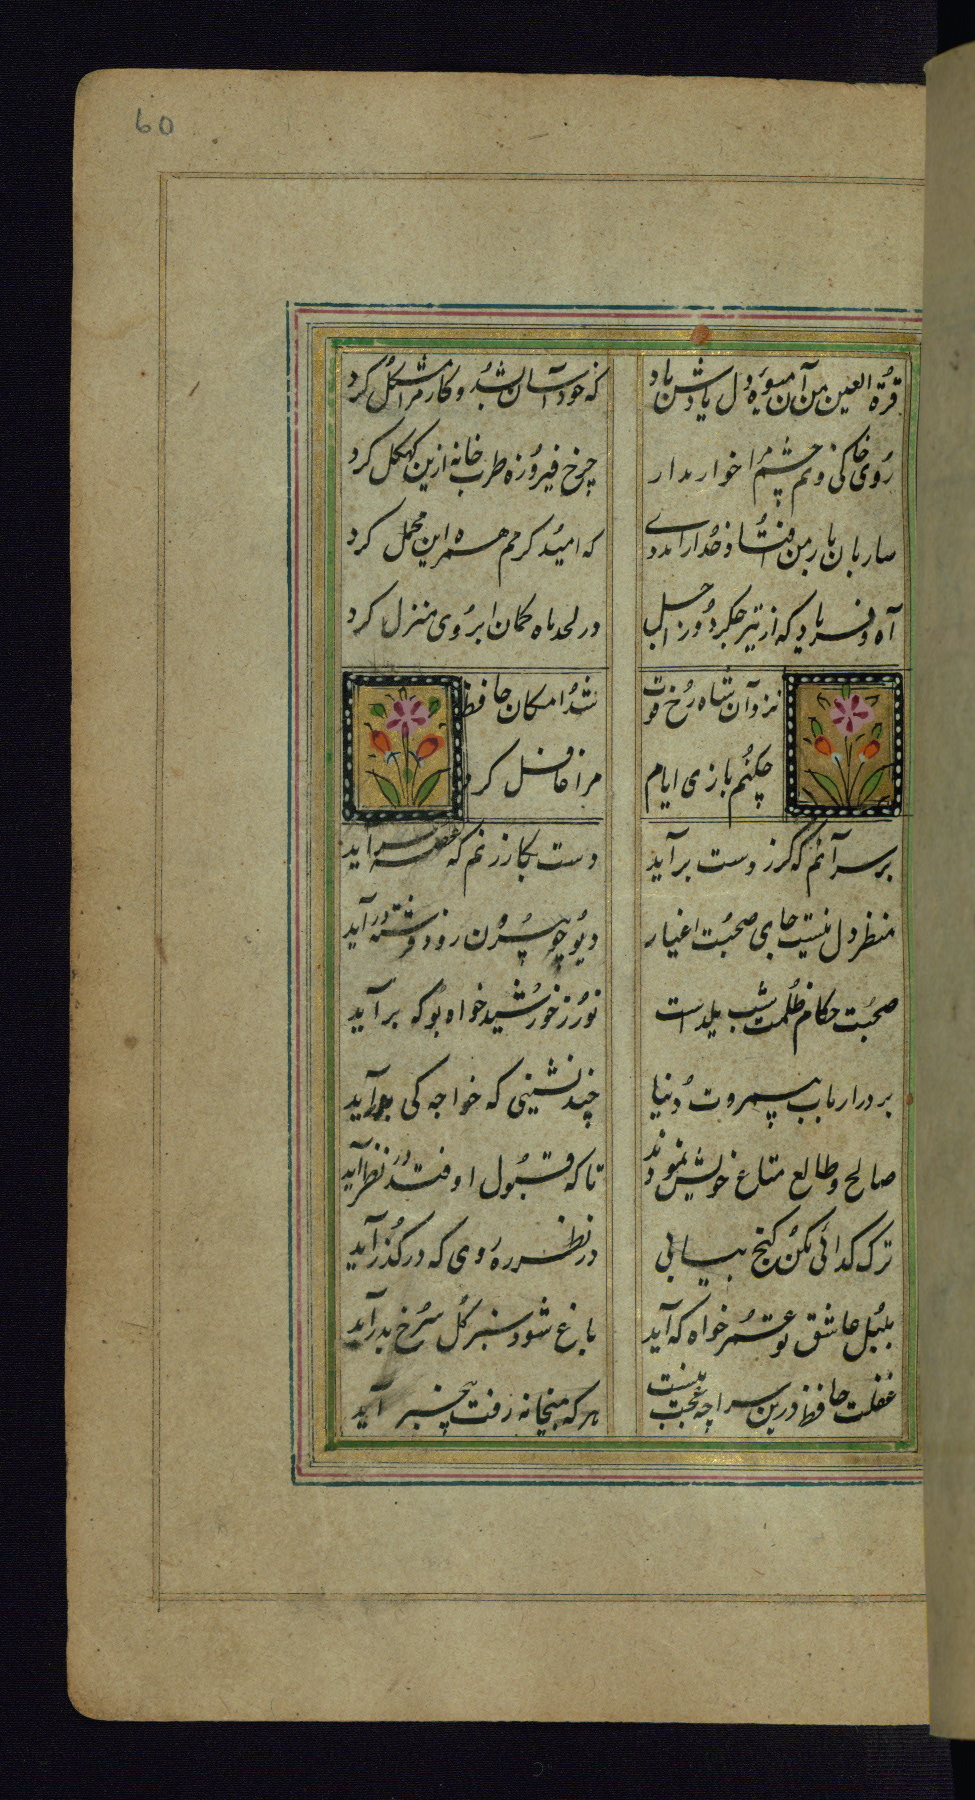 60
قرة العین من آن میوهٔ دل یادش باد
که خود آسان بشد و کار مرا مشکل کرد
روی خاکی و نم چشم مرا خوار مدار
چرخ فیروزه طرب خانه ازین کهگل کرد
ساربان بار من افتاد خدا را مددی
که امید کرمم همره این محمل کرد
آه و فریاد که از تیر جگر دوز اجل
در لحد ماه کمان ابروی منزل کرد
نزد آن شاه رخ فوت
شد امکان حافظ
چکنم بازی ایام
مرا غافل کرد
بر سر آنم که گر ز دست برآید
دست بکار زنم که غصه سرآید
منظر دل نیست جای صحبت اغیار
دیو چو بیرون رود فرشته درآید
صحبت حکام ظلمت شب یلداست
نور ز خورشید خواه بو که برآید
بر در ارباب بیمروت دنیا
چند نشینی که خواجه کی بدرآید
صالح و طالع متاع خویش نمودند
تا که قبول افتد و در نظر آید
ترک گدائی مکن گنج بیابی
در نظر ره روی که در گذر آید
بلبل عاشق تو عمر خواه که آید
باغ شود سبز گل سرخ بدرآید
غفلت حافظ درین سراچه عجب نیست
هر که بمیخانه رفت بیخبر آید